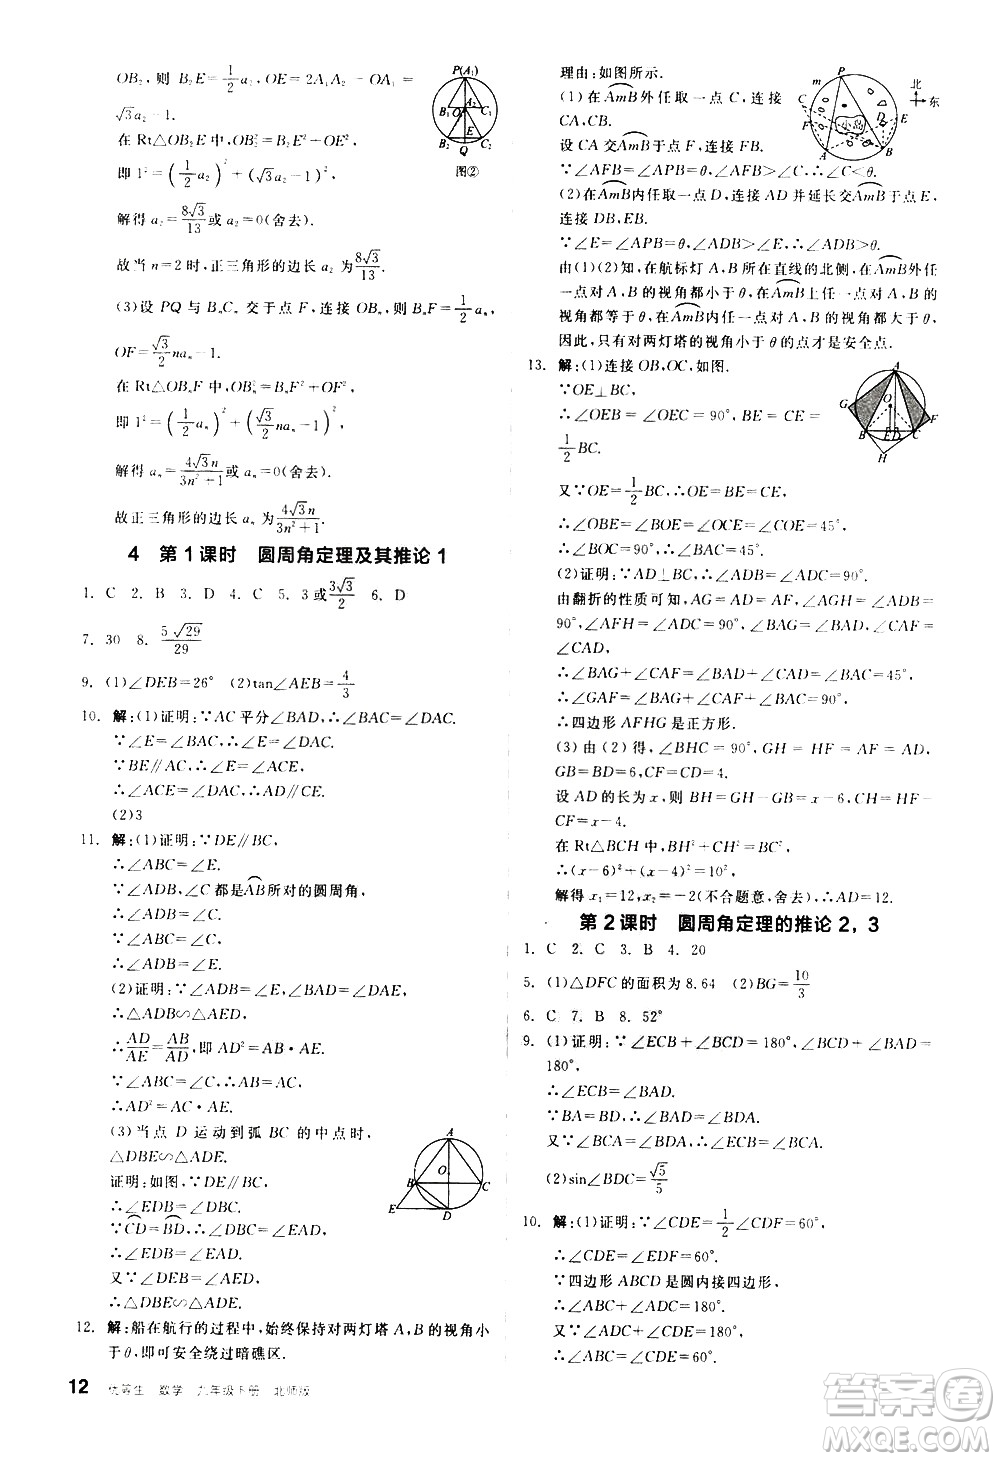 OB₂,则 B₂E=1/2 a₂,OE=2A₁A₂-OA₁=
√3a₂-1.
在 Rt△OB₂E 中,OB₂²=B₂E²+OE²,
即 1²=(1/2 a₂)²+(√3a₂-1)²,
解得 a₂=8√3/13或 a₂=0(舍去).
故当 n=2 时,正三角形的边长 a₂ 为8√3/13.
(3)设 PQ 与 BₙCₙ 交于点 F,连接 OBₙ,则 BₙF=1/2 aₙ,
OF=√3/2 naₙ-1.
在 Rt△OBₙF 中,OBₙ²=BₙF²+OF²,
即 1²=(1/2 aₙ)²+(√3/2 naₙ-1)²,
解得 aₙ=4√3n/3n²+1或 aₙ=0(舍去).
故正三角形的边长 aₙ 为4√3n/3n²+1.
P(A₁)
A₂
O
B₁ C₁
E
B₂ Q C₂
图②
4 第1课时 圆周角定理及其推论1
1. C 2. B 3. D 4. C 5. 3或3√3/2 6. D
7. 30 8. 5√29/29
9. (1)∠DEB=26° (2)tan∠AEB=4/3
10. 解:(1)证明:∵AC平分∠BAD,∴∠BAC=∠DAC.
∵∠E=∠BAC,∴∠E=∠DAC.
∵BE∥AC,∴∠E=∠ACE.
∴∠ACE=∠DAC,∴AD∥EC.
(2)3
11. 解:(1)证明:∵DE∥BC,
∴∠ABC=∠E.
∵∠ADB,∠C都是AB所对的圆周角,
∴∠ADB=∠C.
又∵∠ABC=∠C,
∴∠ADB=∠E.
(2)证明:∵∠ADB=∠E,∠BAD=∠DAE,
∴△ADB∽△AED.
∴AD/AE=AB/AD,即 AD²=AB·AE.
∵∠ABC=∠C,∴AB=AC.
∴AD²=AC·AE.
(3)当点 D 运动到弧 BC 的中点时,
△DBE∽△ADE.
证明:如图,∵DE∥BC,
∴∠EDB=∠DBC.
∵CD=BD,∴∠DBC=∠EAD.
∴∠EDB=∠EAD.
又∵∠DEB=∠AED,
∴△DBE∽△ADE.
A
O
B C
E D
12. 解:船在航行的过程中,始终保持对两灯塔 A,B 的视角小
于θ,即可安全绕过暗礁区.
12 优等生 数学 九年级下册 北师版
理由:如图所示.
(1)在AmB外任取一点 C,连接
CA,CB.
设 CA 交AmB于点 F,连接 FB.
∵∠AFB=∠APB=θ,∠AFB>∠C,∴∠C<θ.
(2)在AmB内任取一点 D,连接 AD 并延长交AmB于点 E,
连接 DB,EB.
∵∠E=∠APB=θ,∠ADB>∠E,∴∠ADB>θ.
由(1)(2)知,在航标灯 A,B 所在直线的北侧,在AmB外任
一点对 A,B 的视角都小于θ,在AmB上任一点对 A,B 的
视角都等于θ,在AmB内任一点对 A,B 的视角都大于θ.
因此,只有对两灯塔的视角小于θ的点才是安全点.
P
m
C
F
小岛
E
A B
北
东
13. 解:(1)连接OB,OC,如图.
∵OE⊥BC,
∴∠OEB=∠OEC=90°,BE=CE=
1/2 BC.
又∵OE=1/2 BC,∴OE=BE=CE,
∴∠OBE=∠BOE=∠OCE=∠COE=45°,
∴∠BOC=90°,∴∠BAC=45°.
(2)证明:∵AD⊥BC,∴∠ADB=∠ADC=90°.
由翻折的性质可知,AG=AD=AF,∠AGB=∠ADB=
90°,∠AFH=∠ADC=90°,∠BAG=∠BAD,∠CAF=
∠CAD,
∴∠BAG+∠CAF=∠BAD+∠CAD=∠BAC=45°,
∴∠GAF=∠BAG+∠CAF+∠BAC=90°,
∴四边形 AFHG 是正方形.
(3)由(2)得,∠BHC=90°,GH=HF=AF=AD,
GB=BD=6,CF=CD=4.
设 AD 的长为 x,则 BH=GH-GB=x-6,CH=HF-
CF=x-4.
在 Rt△BCH 中,BH²+CH²=BC²,
∴(x-6)²+(x-4)²=10²,
解得 x₁=12,x₂=-2(不合题意,舍去),∴AD=12.
A
G O F
B E D C
H
第2课时 圆周角定理的推论2,3
1. C 2. C 3. B 4. 20
5. (1)△DFC的面积为8.64 (2)BG=10/3
6. C 7. B 8. 52°
9. (1)证明:∵∠ECB+∠BCD=180°,∠BCD+∠BAD=
180°,
∴∠ECB=∠BAD.
∵BA=BD,∴∠BAD=∠BDA.
又∵∠BCA=∠BDA,∴∠ECB=∠BCA.
(2)sin∠BDC=√5/5
10. 解:(1)证明:∵∠CDE=1/2∠CDF=60°,
∴∠CDE=∠EDF=60°.
∵四边形 ABCD 是圆内接四边形,
∴∠ABC+∠ADC=180°.
又∵∠CDE+∠ADC=180°,
∴∠ABC=∠CDE=60°.
答案圈
MXQE.COM